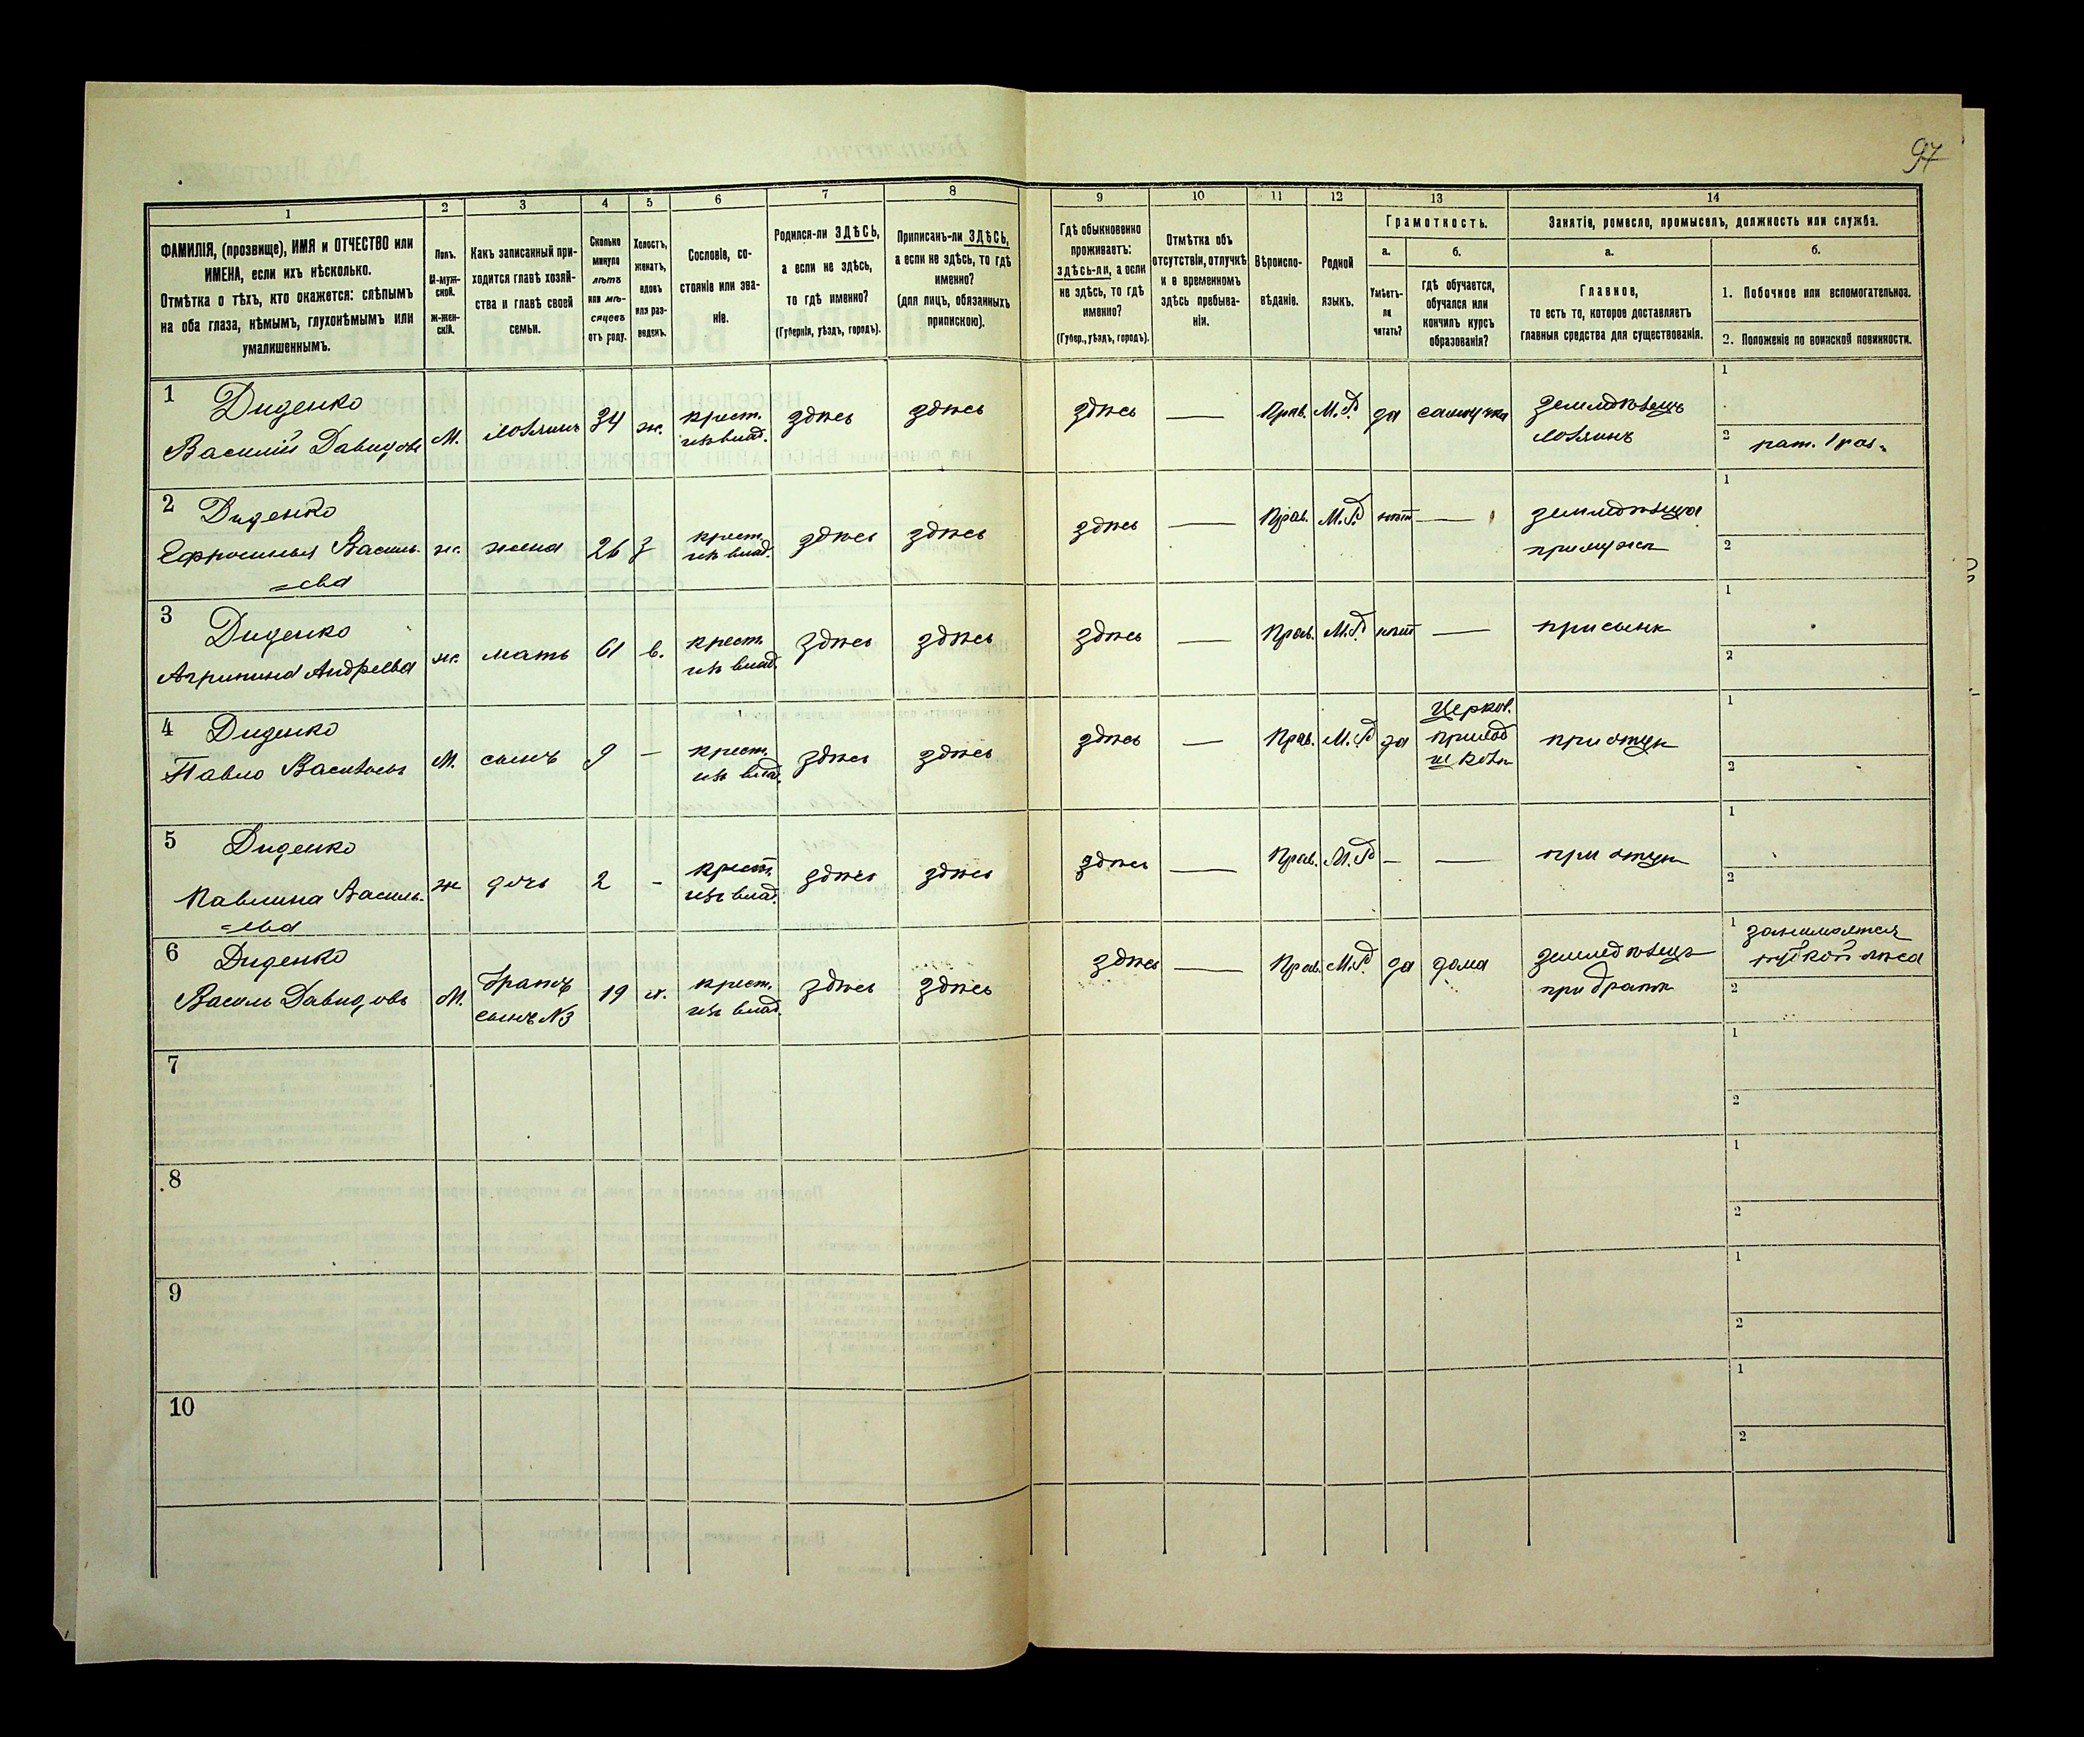 97
1 2 3 4 5 6 7 8 9 10 11 12 13 14
ФАМИЛІЯ, (прозвище), ИМЯ и ОТЧЕСТВО или
ИМЕНА, если ихъ нѣсколько.
Отмѣтка о тѣхъ, кто окажется: слѣпымъ
на оба глаза, нѣмымъ, глухонѣмымъ или
умалишеннымъ.
Полъ.
М-муж-
ской.
ж-жен-
скій.
Какъ записанный при-
ходится главѣ хозяй-
ства и главѣ своей
семьи.
Сколько
минуло
лѣтъ
или мѣ-
сяцевъ
отъ роду.
Холостъ,
женатъ,
вдовъ
или раз-
веденъ.
Сословіе, со-
стояніе или зва-
ніе.
Родился-ли ЗДѢСЬ,
а если не здѣсь,
то гдѣ именно?
(Губернія, уѣздъ, городъ).
Приписанъ-ли ЗДѢСЬ,
а если не здѣсь, то гдѣ
именно?
(для лицъ, обязанныхъ
припискою).
Гдѣ обыкновенно
проживаетъ:
здѣсь-ли, а если
не здѣсь, то гдѣ
именно?
(Губер., уѣздъ, городъ).
Отмѣтка объ
отсутствіи, отлучкѣ
и о временномъ
здѣсь пребыва-
ніи.
Вѣроиспо-
вѣданіе.
Родной
языкъ.
Грамотность.
а.
Умѣетъ-
ли
читать?
б.
гдѣ обучается,
обучался или
кончилъ курсъ
образованія?
Занятіе, ремесло, промыселъ, должность или служба.
а.
Главное,
то есть то, которое доставляетъ
главныя средства для существованія.
б.
1. Побочное или вспомогательное.
2. Положеніе по воинской повинности.
1 Диденко
Василій Давидовъ
М.
хозяинъ
34
ж.
крест.
изъ влад.
здѣсь
здѣсь
здѣсь
—
Прав.
М.Р.
да
самоучка
земледѣлецъ
хозяинъ
1
2 рат. 1 раз.
2 Диденко
Ефросинья Василь-
=ева
ж.
жена
26
з
крест.
изъ влад.
здѣсь
здѣсь
здѣсь
—
Прав.
М.Р.
нѣт
—
земледѣлица
при мужѣ
1
2
3 Диденко
Агрипина Андреева
ж.
мать
61
в.
крест.
изъ влад.
здѣсь
здѣсь
здѣсь
—
Прав.
М.Р.
нѣт
—
при сынѣ
1
2
4 Диденко
Павло Васильевъ
М.
сынъ
9
—
крест.
изъ влад.
здѣсь
здѣсь
здѣсь
—
Прав.
М.Р.
да
Церков.
приход
при отцѣ
1
2
5 Диденко
Павлина Василь-
=ева
ж
дочь
2
-
крест.
изъ влад.
здѣсь
здѣсь
здѣсь
—
Прав.
М.Р.
-
—
при отцѣ
1
2
6 Диденко
Василь Давидовъ
М.
братъ
сынъ №3
19
х.
крест.
изъ влад.
здѣсь
здѣсь
здѣсь
—
Прав.
М.Р.
да
дома
земледѣлецъ
при братѣ
1 занимается
2
7
1
2
8
1
2
9
1
2
10
1
2